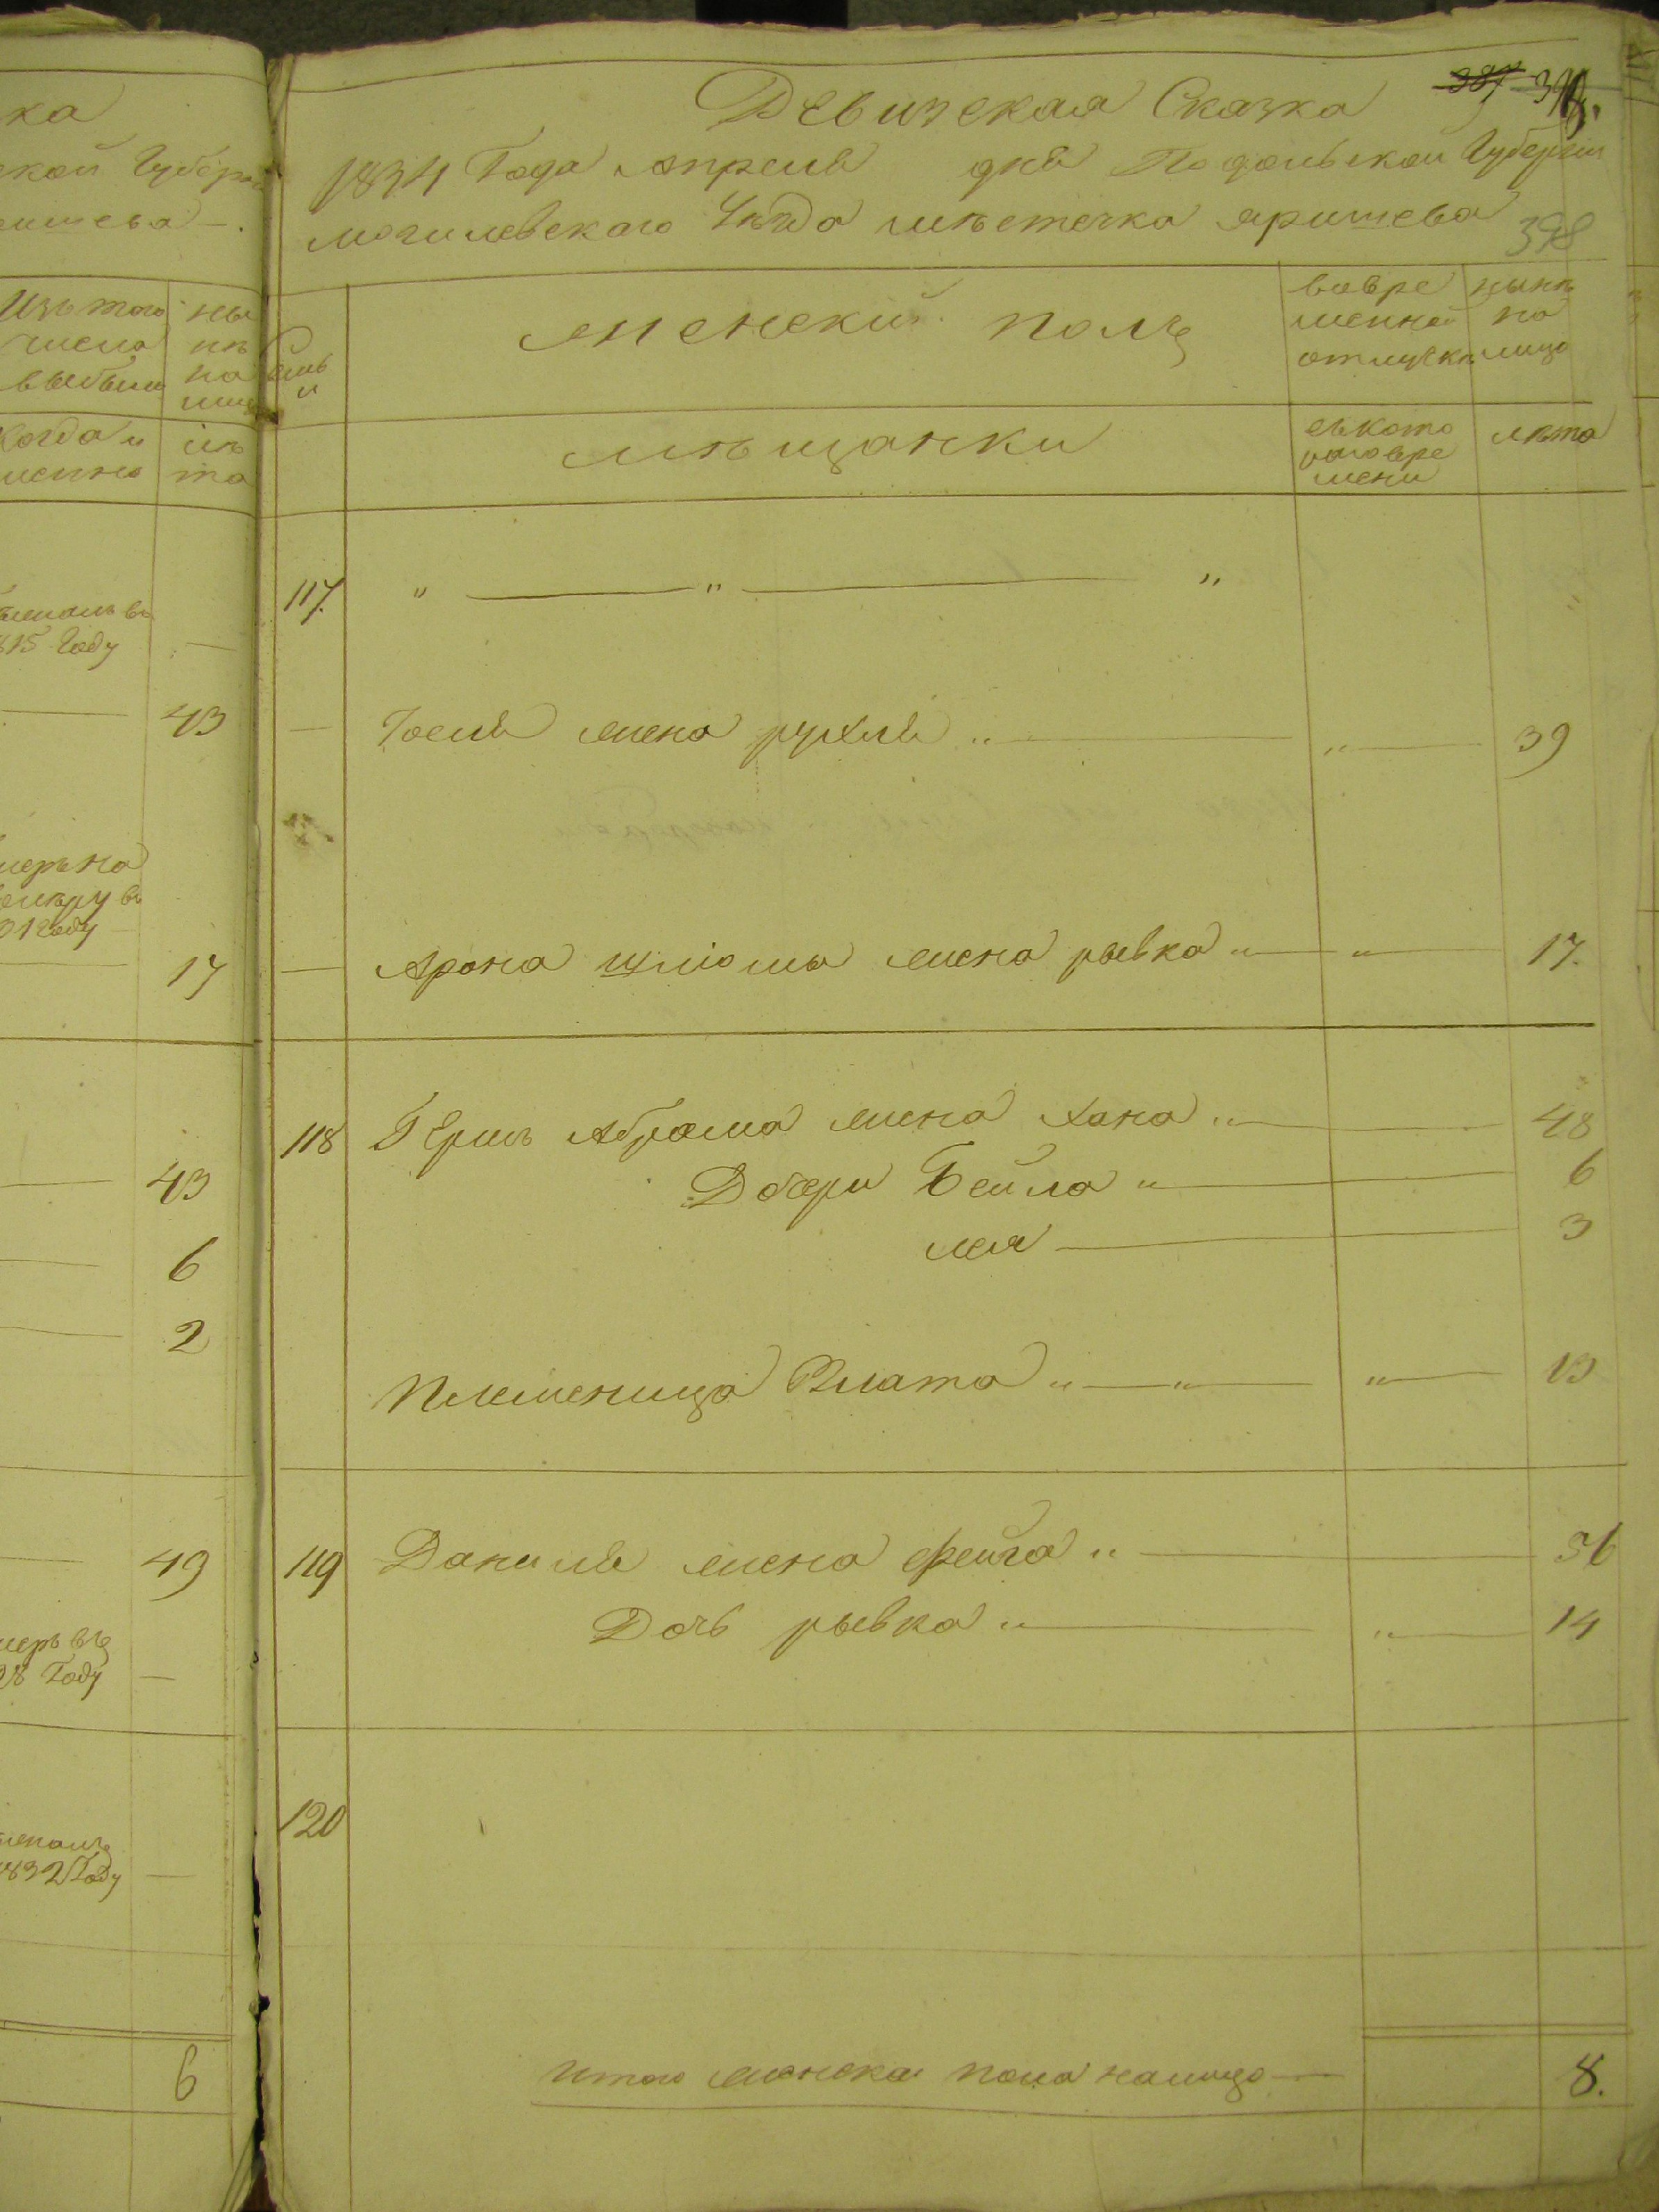 ка
ской Губер
ишева
Изъ того
числа
выбыли
ны
нѣ
на
лицо
Когда и
менно
лѣ
та
815 Году
—
43
меръ на
31 Году
17
43
6
2
49
меръ въ
28 Году
—
1832 Году
—
6
387 398.
Ревизская Сказка
1834 Года апреля дня Подольской Губернии
могилевского Уѣзда мѣстечка яришева
398
Семьи
женский полъ
вовре
менной
отлучкѣ
нынѣ
на
лицо
мѣщанки
съкото
рагоовре
мени
лѣта
117. " — " — "
— Іоселя жена рухля " — " — 39
— Арона шліомы жена рывка " — " — 17.
118 Гершъ Абрама жена хана " — 48
Дочери Бейла " — 6
лея — 3
племеница Злата " — " — " — 13
119 Даниля жена фейга " — 36
Дочь рывка " — " — 14
120
Итого женска пола налицо — 8.